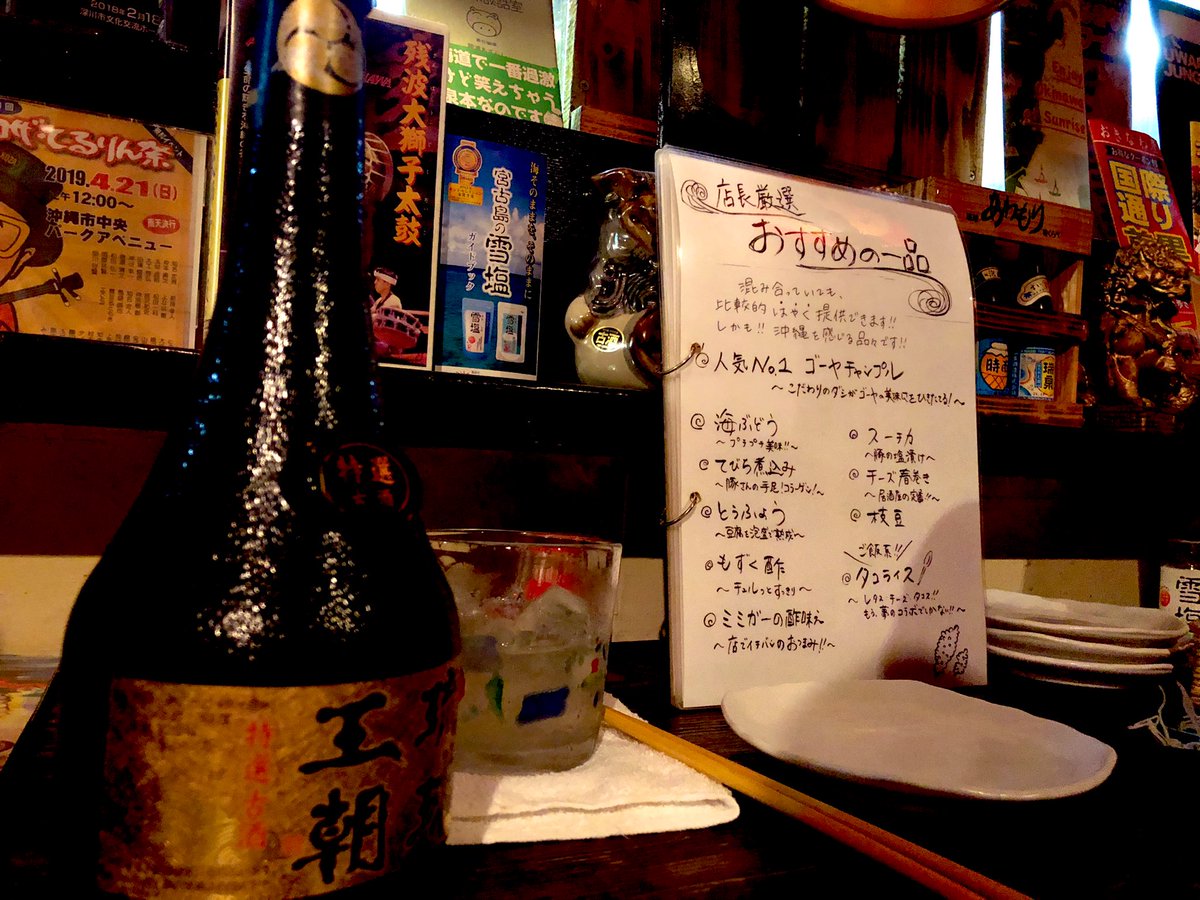 2018年2月18
深川市文化交流ホー
道で一番過激
けど笑えちゃう
泉本なのです
残波大獅子太鼓
てるりん祭
2019.4.21(日)
12:00〜
雨天決行
沖縄市中央
パークアベニュー
海そのまま、そのままに
宮古島の雪塩
ガイドブック
雪塩
雪塩
店長厳選
おすすめの一品
混み合っていても、
比較的 はやく提供できます!!
しかも!! 沖縄を感じる品々です!!
◎人気No.1 ゴーヤチャンプル
〜こだわりのダシがゴーヤの美味しさをひきたてる!〜
◎海ぶどう
〜プチプチ美味!!〜
◎てびち煮込み
〜豚さんの手足!コラーゲン!〜
◎とうふよう
〜豆腐を泡盛で熟成〜
◎もずく酢
〜チュルっとすっきり〜
◎ミミガーの酢味え
〜店でイチバンのおつまみ!!〜
◎スーチカ
〜豚の塩漬け〜
◎チーズ春巻き
〜居酒屋の定番!!〜
◎枝豆
\ご飯系!!/
◎タコライス
〜レタス チーズ タコス!!
もう、夢のコラボでしかない!!〜
あわもり
Enjoy
Sunrise
国際通り
時雨
瑞泉
雪塩
特選
古酒
王朝
特選古酒